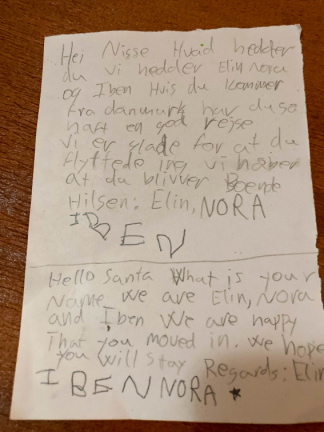 Hei Nisse Hvad hedder
du vi hedder Elin Nora
og Iben Hvis du kommer
fra danmark har du så
haft en god rejse
vi er glade for at du
flyttede ing vi håber
at du blivver Boende
Hilsen: Elin, NORA
IBEN
Hello Santa What is your
Name we are Elin, Nora
and Iben We are happy
That you moved in. we hope
you will stay Regards: Elin
IBEN NORA ★